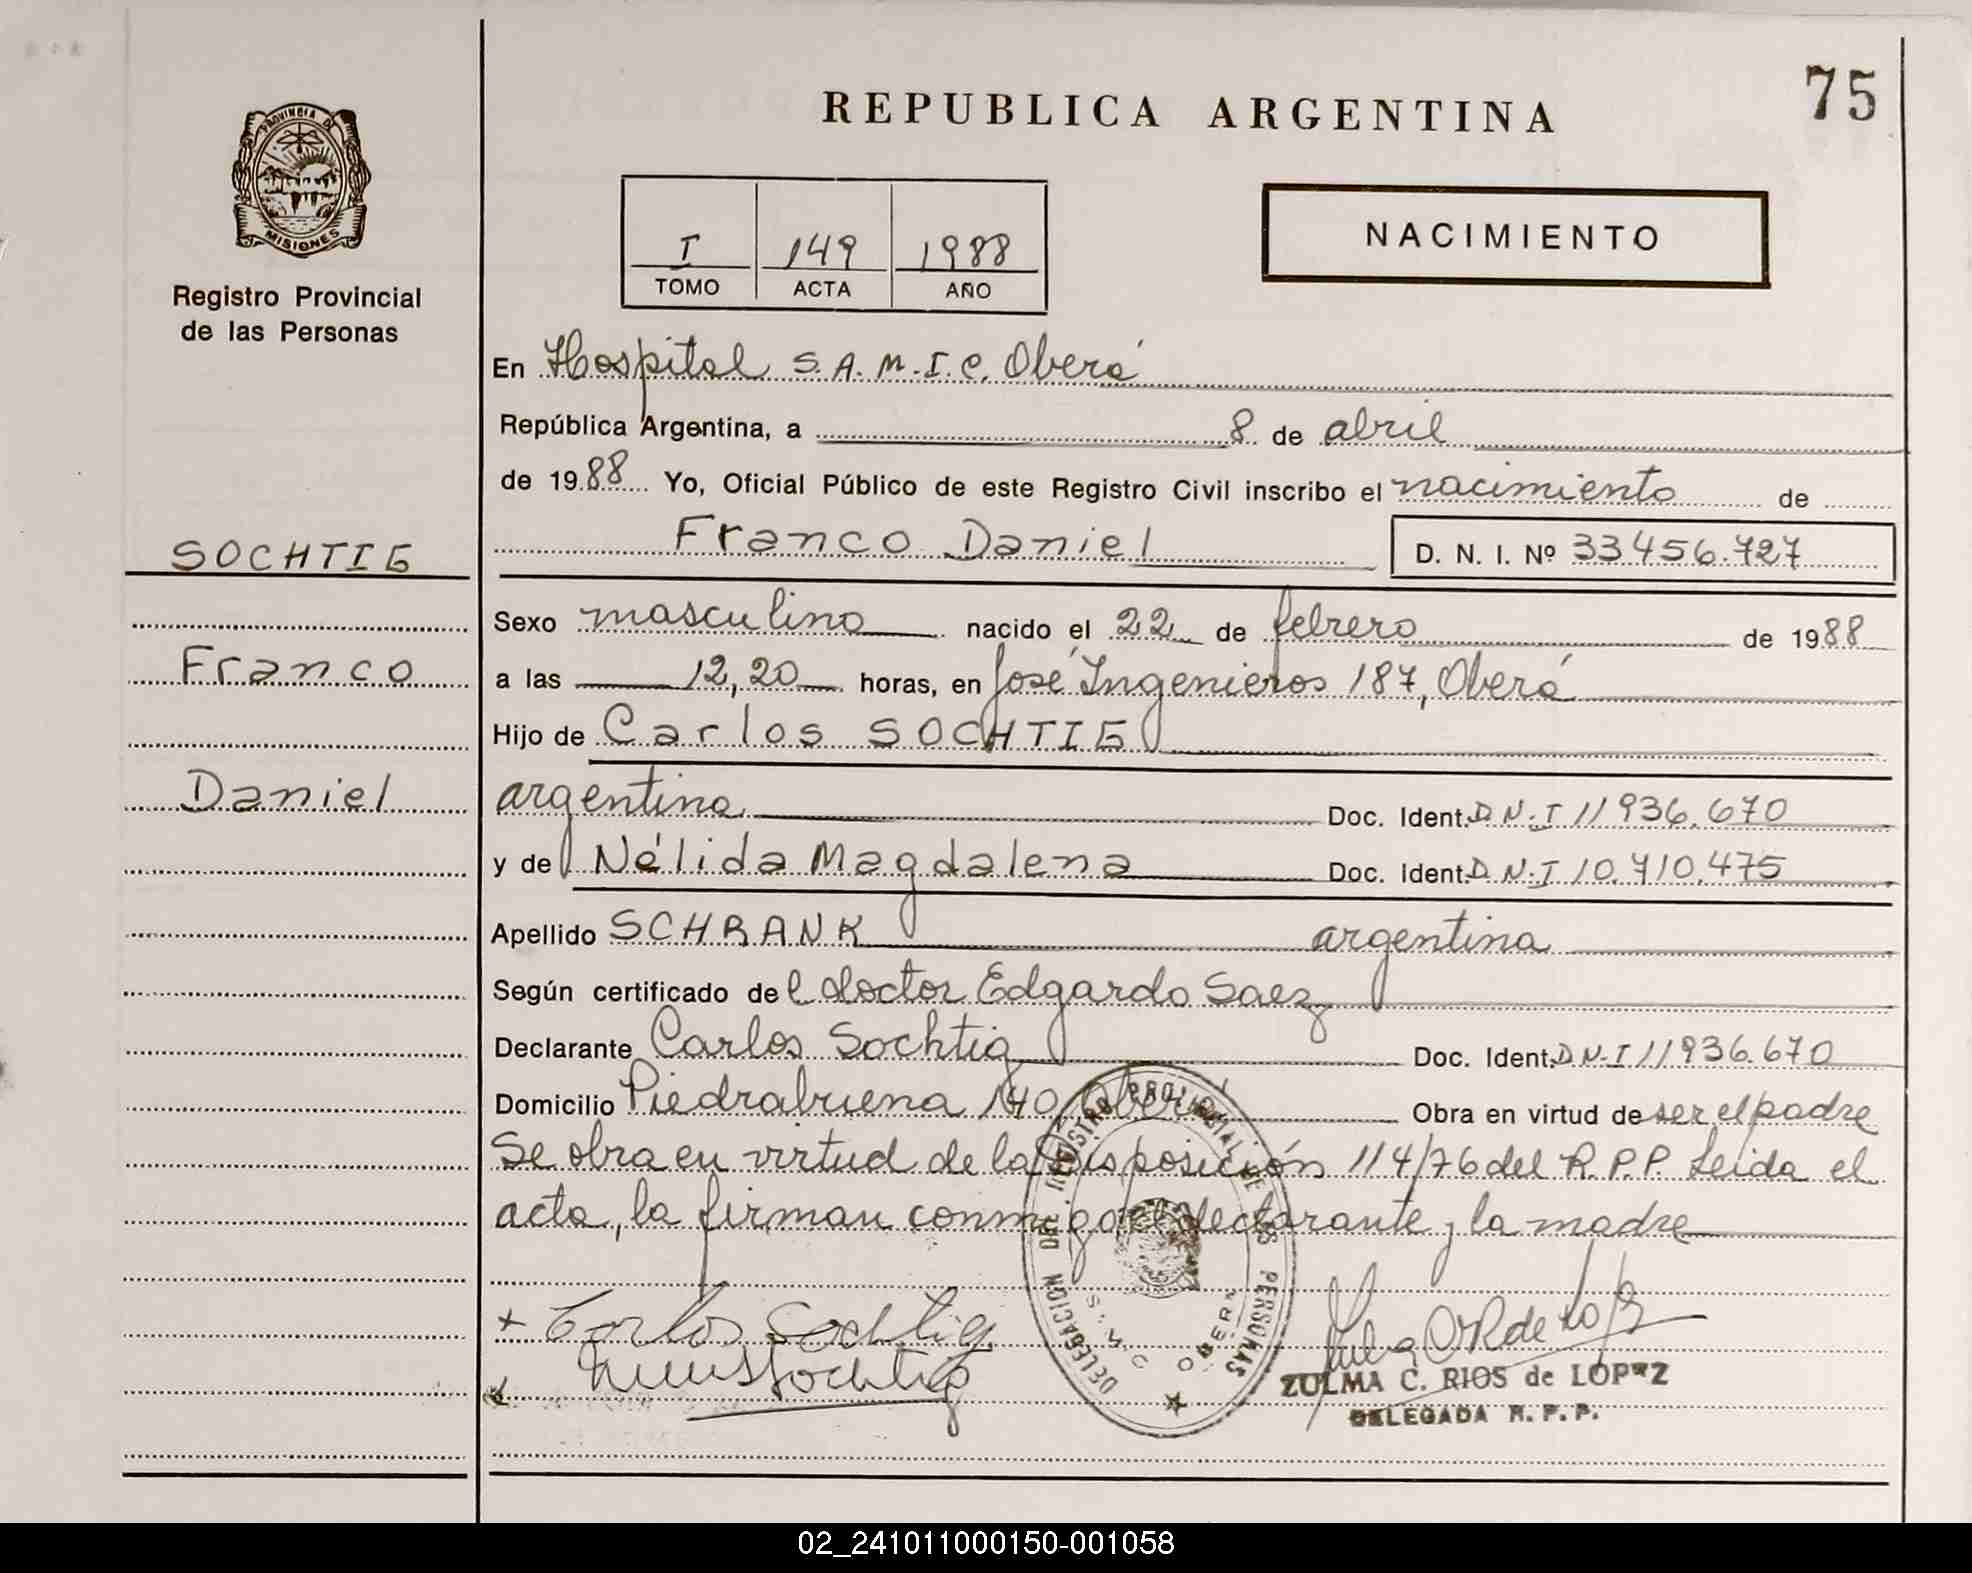 75
REPUBLICA ARGENTINA
PROVINCIA DE
MISIONES
Registro Provincial
de las Personas
I 149 1988
TOMO ACTA AÑO
NACIMIENTO
En Hospital S.A.M.I.C. Oberá
República Argentina, a 8 de abril
de 1988 Yo, Oficial Público de este Registro Civil inscribo el nacimiento de
SOCHTIG
Franco Daniel D. N. I. Nº 33456.727
Sexo masculino nacido el 22 de febrero de 1988
Franco
a las 12,20 horas, en José Ingenieros 187, Oberá
Hijo de Carlos SOCHTIG
Daniel
argentina Doc. Ident. D.N.I 11936.670
y de Nélida Magdalena Doc. Ident. D.N.I 10.710.475
Apellido SCHRANK argentina
Según certificado del doctor Edgardo Saez
Declarante Carlos Sochtig Doc. Ident. D.N.I 11936.670
Domicilio Piedrabuena 140 Oberá Obra en virtud de ser el padre
Se obra en virtud de la Disposición 114/76 del R.P.P. Leida el
acta, la firman conmigo el declarante y la madre
DELEGACION DEL REGISTRO PROVINCIAL DE LAS PERSONAS
OBERA
+ Carlos Sochtig
Sochtig
ZULMA C. RIOS de LOPEZ
DELEGADA R. P. P.
02_241011000150-001058